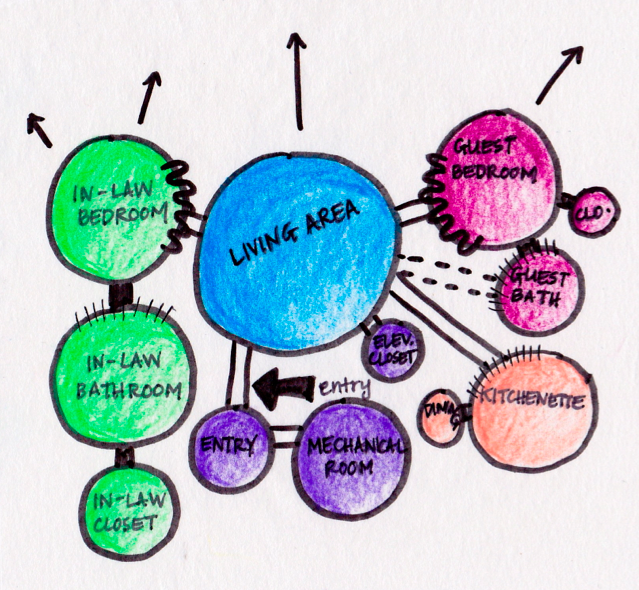 IN-LAW
BEDROOM
LIVING AREA
GUEST
BEDROOM
CLO.
GUEST
BATH
ELEV.
CLOSET
IN-LAW
BATHROOM
entry
KITCHENETTE
ENTRY
MECHANICAL
ROOM
IN-LAW
CLOSET